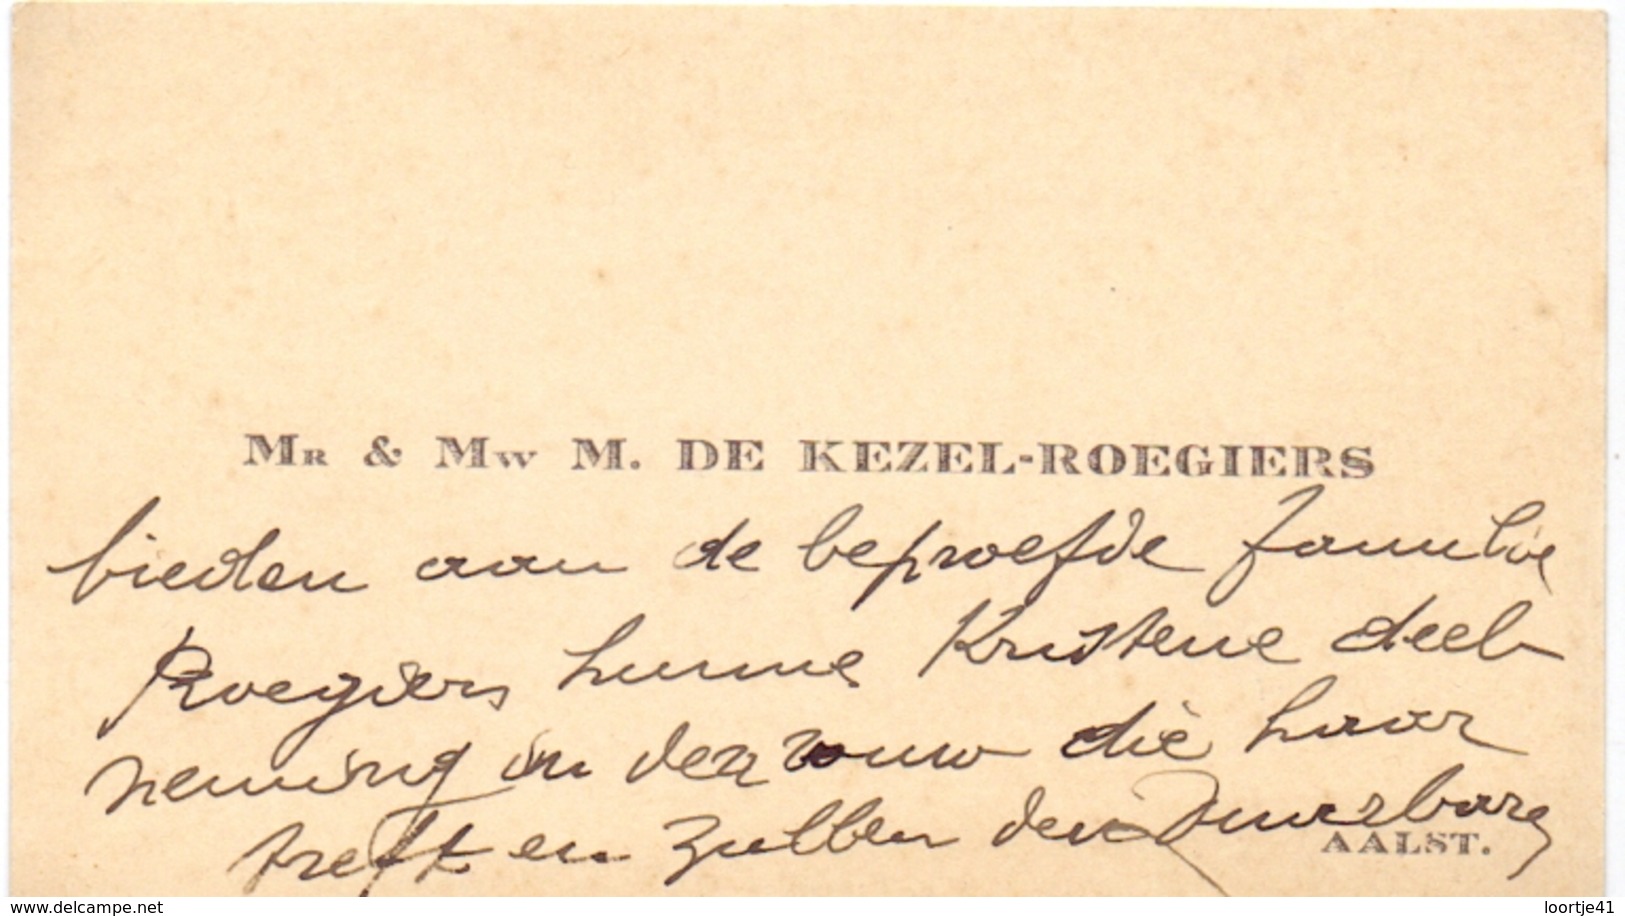 MR & MW M. DE KEZEL-ROEGIERS
bieden aan de beproefde familie
Roegiers hunne Kristene deel
neming in den rouw die haar
treft en zullen den Duurbare
AALST.
www.delcampe.net
loortje41